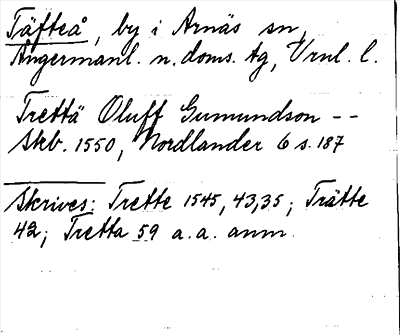 Täfteå, by i Arnäs sn,
Ångermanl. n. doms. tg, Vrnl. l.
Trettä Oluff Gumundson --
Skb. 1550, Nordlander 6 s. 187
Skrives: Trette 1545, 43, 35; Trätte
42; Tretta 59 a. a. anm.